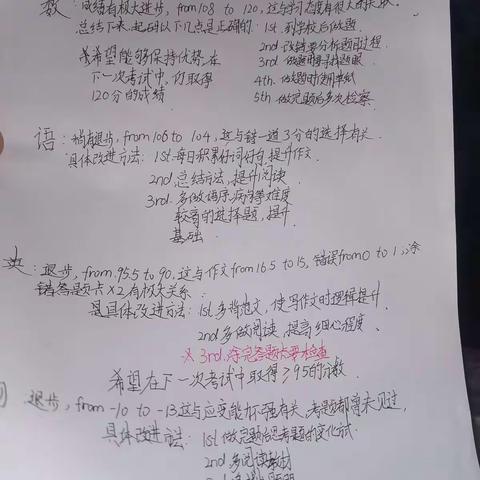 数: 成绩有极大进步, from 108 to 120, 这与学习态度有很大的关联.
总结下来, 起码以下几点是正确的: 1st. 到学校后做题.
我希望能够保持优势, 在 2nd 改错要分析题目过程.
下一次考试中, 仍取得 3rd. 做题时寻找题眼
120分的成绩 4th. 做题时使用草纸
5th 做完题后多次检察.
语: 稍有退步, from 106 to 104, 这与错一道3分的选择有关.
具体改进方法: 1st. 每日积累好词好句, 提升作文.
2nd 总结方法, 提升阅读
3rd. 多做语序、病句等难度
较高的选择题, 提升
基础.
英: 退步, from 95.5 to 90, 这与作文 from 16.5 to 15, 错误 from 0 to 1, 涂
错答题卡×2有极大关系.
具体改进方法: 1st 多背范文, 使写作文时逻辑提升.
2nd 多做阅读, 提高细心程度.
※ 3rd. 涂完答题卡要检查
希望在下一次考试中取得 ≥95的分数.
退步, from -10 to -13 这与应变能力不强有关, 考题都曾未见过,
具体改进方法: 1st 做完题后思考题的变化式.
2nd 多阅读教材